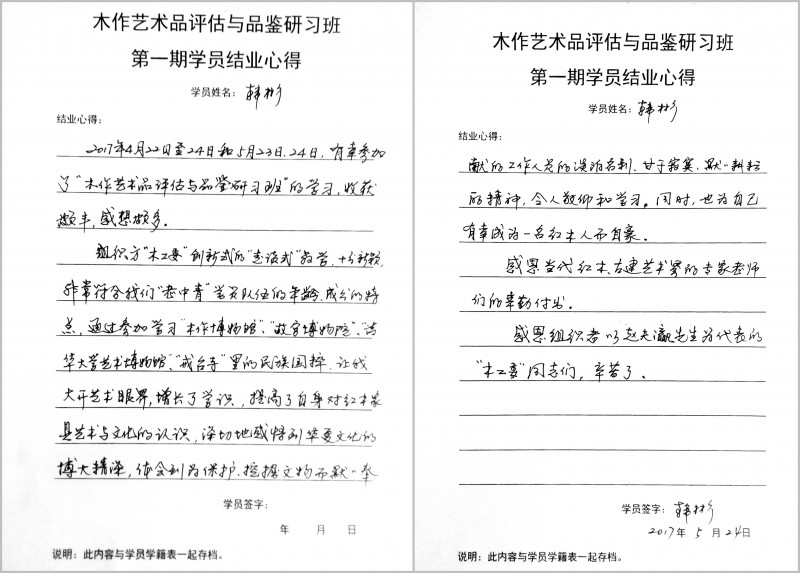 木作艺术品评估与品鉴研习班
第一期学员结业心得
学员姓名：韩彬
结业心得：
2017年4月22日至24日和5月23日、24日，有幸参加
了“木作艺术品评估与品鉴研习班”的学习，收获
颇丰，感想颇多。
组织方“木工委”创新式的“走读式”教学，十分新颖，
非常符合我们“老中青”学员队伍的年龄、成分的特
点，通过参加学习“木作博物馆”、“故宫博物院”、“清
华大学艺术博物馆”、“戒台寺”里的民族国粹，让我
大开艺术眼界，增长了学识，提高了自身对红木家
具艺术与文化的认识，深切地感悟到华夏文化的
博大精深，体会到为保护、挖掘文物而默默奉
学员签字：
年 月 日
说明：此内容与学员学籍表一起存档。
木作艺术品评估与品鉴研习班
第一期学员结业心得
学员姓名：韩彬
结业心得：
献的工作人员的淡泊名利、甘于寂寞、默默耕耘
的精神，令人敬仰和学习。同时，也为自己
有幸成为一名红木人而自豪。
感恩当代红木、古建艺术界的专家老师
们的辛勤付出。
感恩组织者以赵夫瀛先生为代表的
“木工委”同志们，辛苦了。
学员签字：韩彬
2017年 5 月 24日
说明：此内容与学员学籍表一起存档。